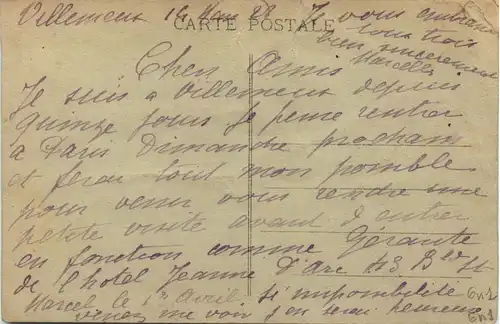 Villemeux 14 Mars 28 Je vous embrasse
CARTE POSTALE
tous trois
bien sincèrement
Marcelle
Cher Amis
Je suis a Villemeux depuis
quinze jours je pense rentrer
a Paris Dimanche prochain
et ferai tout mon possible
pour venir vous rendre une
petite visite avant d entrer
en fonction comme Gérante
de l hotel Jeanne D'Arc 43 Bd St
Marcel le 1er Avril si impossibilité
venez me voir j en serai heureuse
6n1
6n1